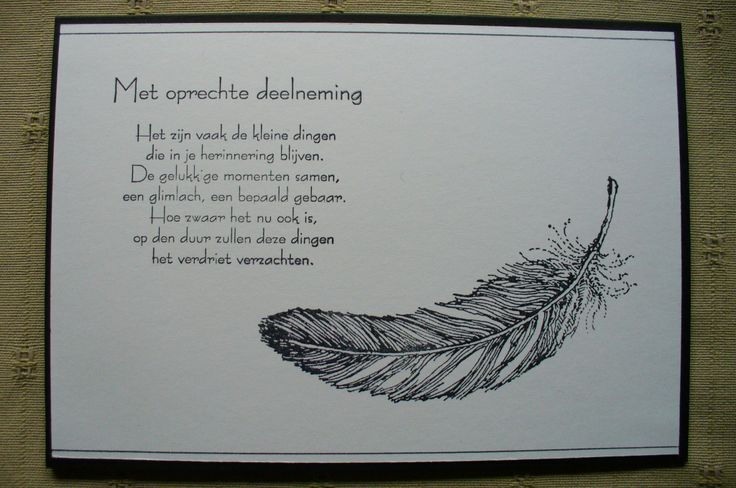 Met oprechte deelneming
Het zijn vaak de kleine dingen
die in je herinnering blijven.
De gelukkige momenten samen,
een glimlach, een bepaald gebaar.
Hoe zwaar het nu ook is,
op den duur zullen deze dingen
het verdriet verzachten.